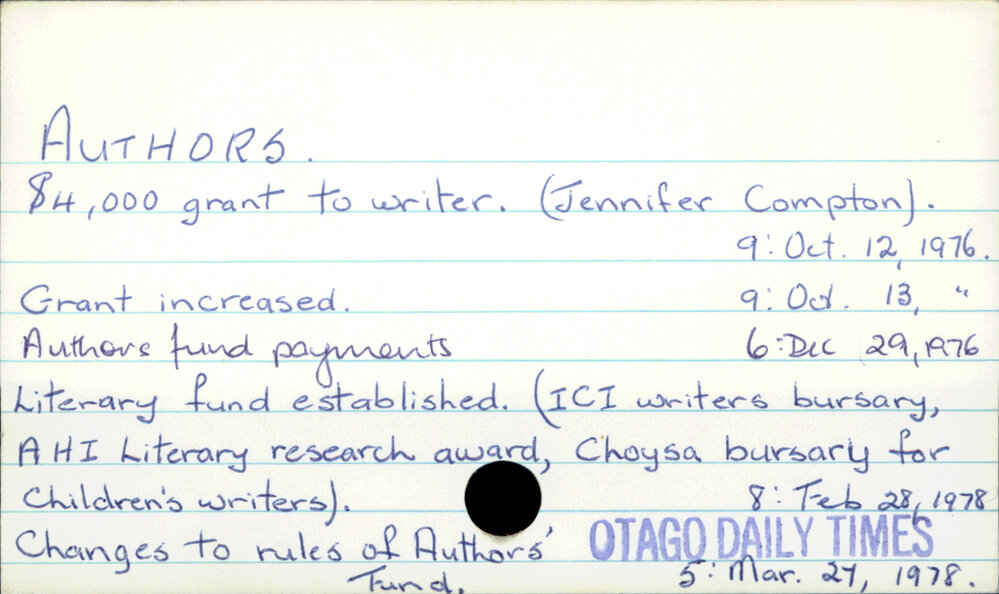 AUTHORS.
$4,000 grant to writer. (Jennifer Compton).
9: Oct. 12, 1976.
Grant increased. 9: Oct. 13, "
Authors fund payments 6: Dec 29, 1976
Literary fund established. (ICI writers bursary,
AHI Literary research award, Choysa bursary for
Children's writers). 8: Feb 28, 1978
Changes to rules of Authors' OTAGO DAILY TIMES
Fund. 5: Mar. 27, 1978.